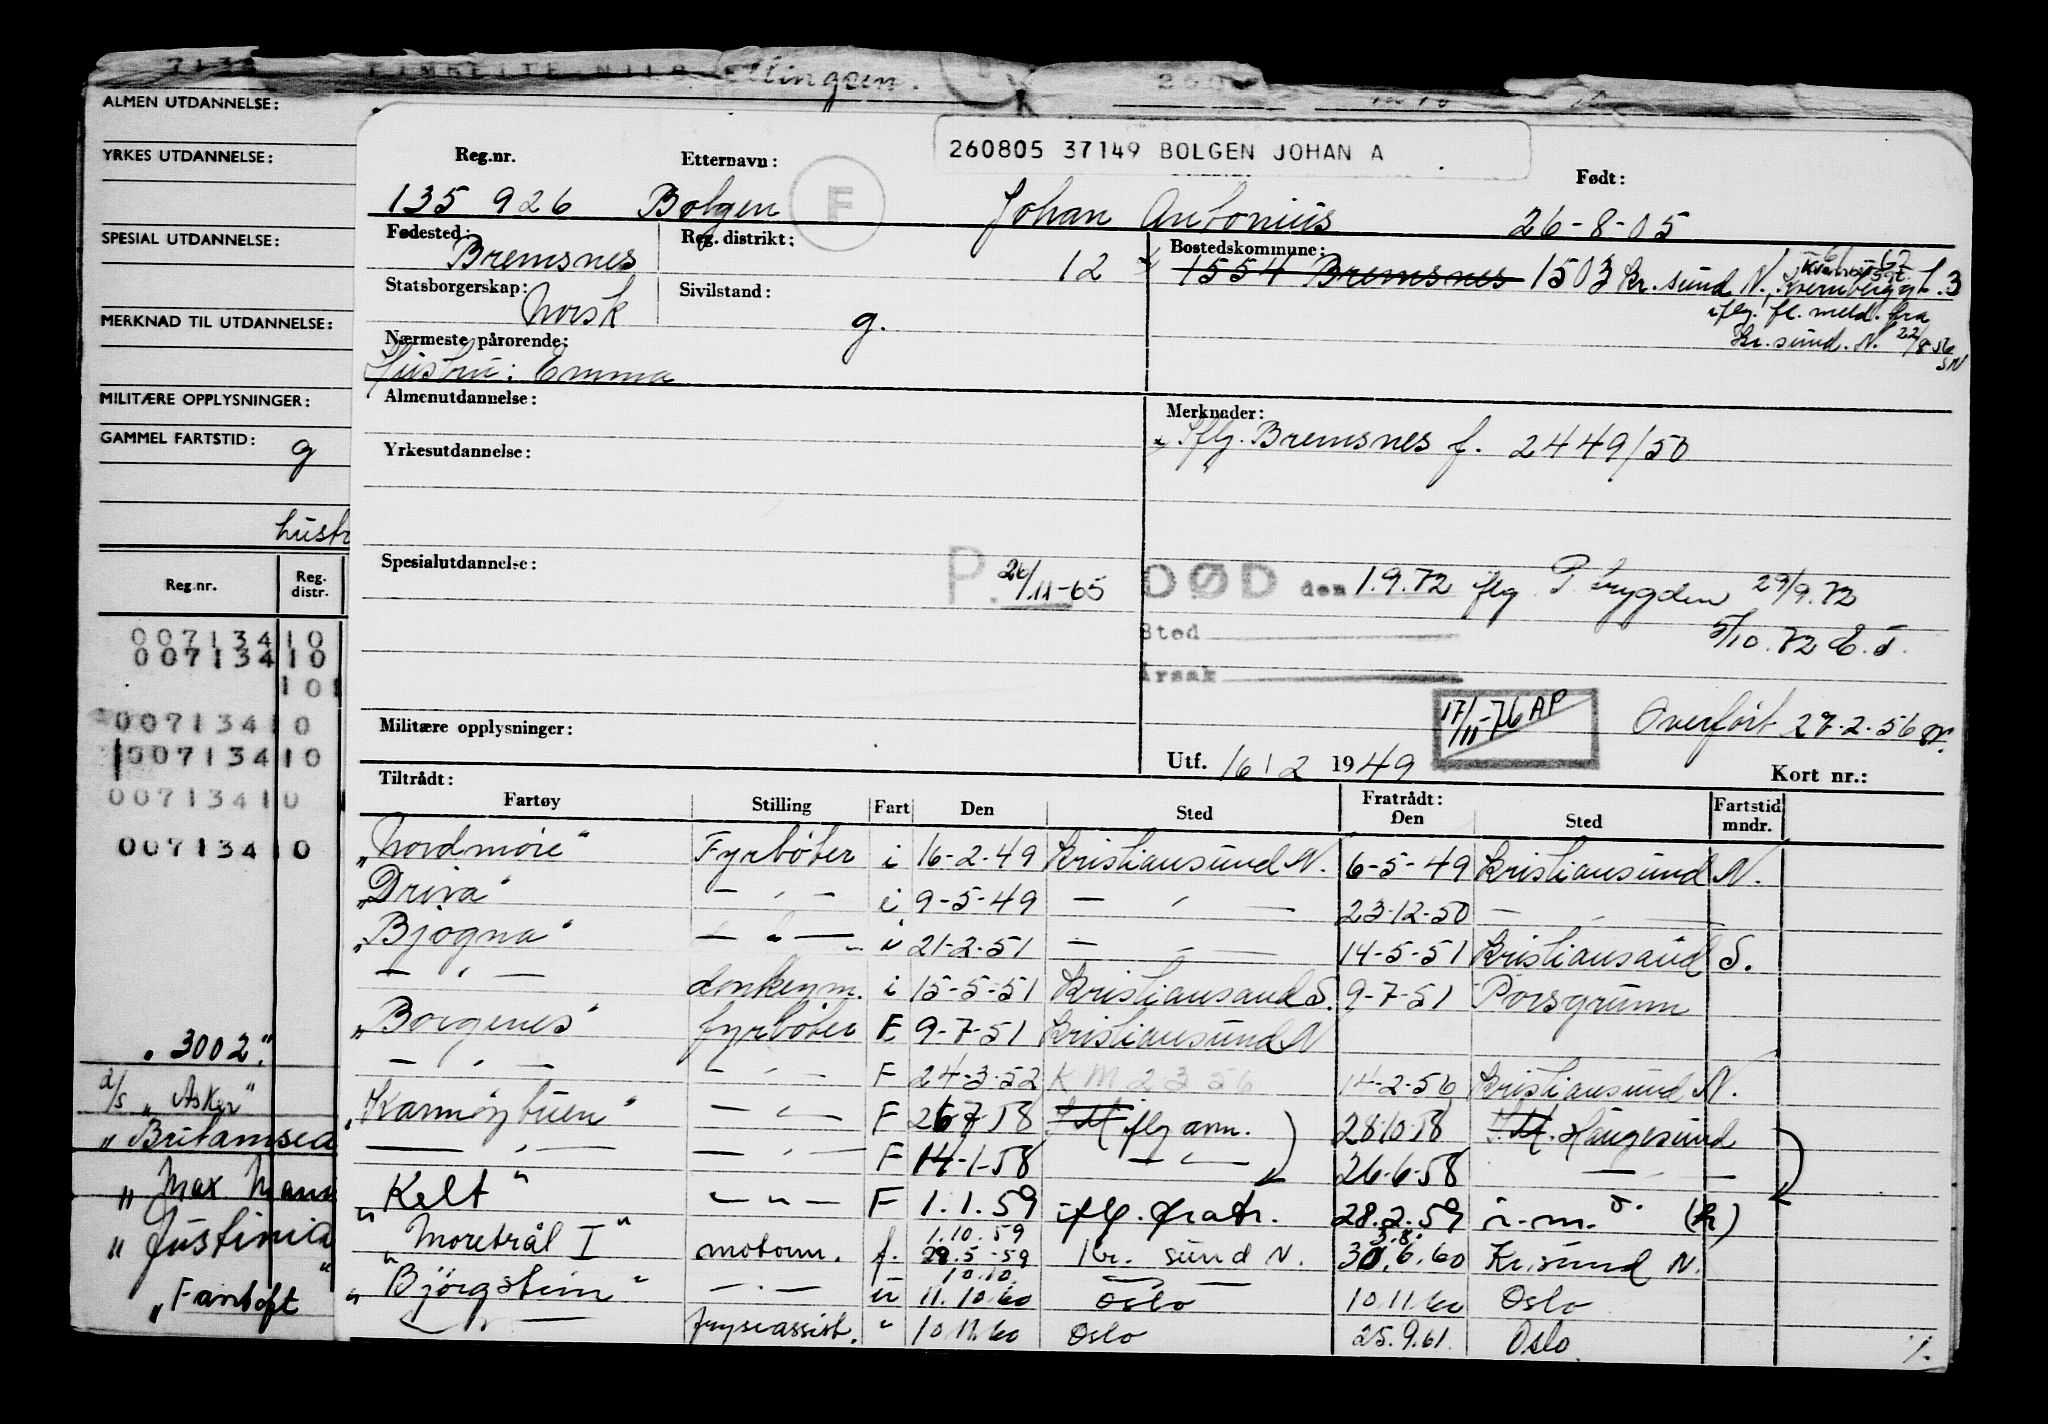 ellingsen.
ALMEN UTDANNELSE:
YRKES UTDANNELSE:
SPESIAL UTDANNELSE:
MERKNAD TIL UTDANNELSE:
MILITÆRE OPPLYSNINGER:
GAMMEL FARTSTID: g
hustr
Reg.nr. Reg. distr.
0071341 0
0071341 0
1 0
0071341 0
0071341 0
0071341 0
0071341 0
"3002"
d/s "Asker"
"Britamsea
"Max Manu
"Justinia
"Fantoft"
260805 37149 BOLGEN JOHAN A
Reg.nr. Etternavn: Født:
135 926 Bolgen F Johan Antonius 26-8-05
Fødested: Bremsnes Reg. distrikt: 12 Bostedskommune:
1554 Bremsnes 1503 Kr.sund N., Kvernberggt. 13
iflg. fl. meld. fra
Kr.sund. N. 22/8-56
SN
Statsborgerskap: norsk Sivilstand: g.
Nærmeste pårørende:
Hustru: Emma
Almenutdannelse:
Merknader:
x Iflg. Bremsnes f. 2449/50
Yrkesutdannelse:
Spesialutdannelse: P. 26/11-65
DØD den 1.9.72 flg P.trygden 29/9.72
Sted 5/10.72 E.S.
Årsak
17/11-76 AP
Overført 27.2.56
Militære opplysninger:
Utf. 16/2 1949 Kort nr.:
Tiltrådt: Fratrådt:
Fartøy Stilling Fart Den Sted Den Sted Fartstid mndr.
"Nordmøre" Fyrbøter i 16-2-49 Kristiansund N. 6-5-49 Kristiansund N.
"Driva" — " — i 9-5-49 — " — 23-12-50 — " —
"Bjogna" — " — i 21-2-51 — " — 14-5-51 Kristiansand S.
— " — donkeym. i 15-5-51 Kristiansand S. 9-7-51 Porsgrunn
"Borgenes" fyrbøter F 9-7-51 Kristiansund N
— " — — " — F 24-3-52 KM 23 56 14-2-56 Kristiansund N.
"Karmøybuen" — " — F 26 7 58 iflg ann. 28 10 58 Haugesund
— " — — " — F 14-1-58 — " — 26-6-58 — " —
"Kelt" — " — F 1.1.59 iflg. fratr. 28.2.59 n.m. (k)
1.10.59 3.8.
"Moretrål I" motorm. f. 29.5-59 Kr. sund N. 30.6.60 Kr.sund N.
10.10.
"Bjørgstein" — " — u 11.10.60 Oslo 10.11.60 Oslo
— " — fryseassist. " 10.11.60 Oslo 25.9.61 Oslo